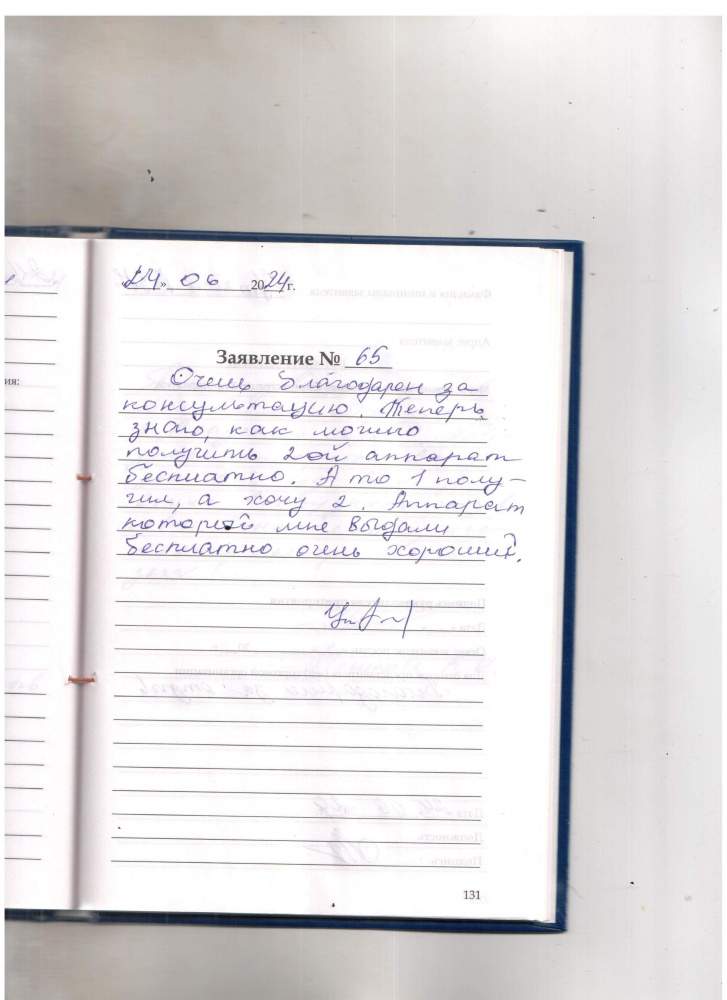 «24» 06 2024г.
ия:
Заявление № 65
Очень благодарен за
консультацию. Теперь
знаю, как можно
получить 2ой аппарат
бесплатно. А то 1 полу-
чил, а хочу 2. Аппарат
который мне выдали
бесплатно очень хороший.
131